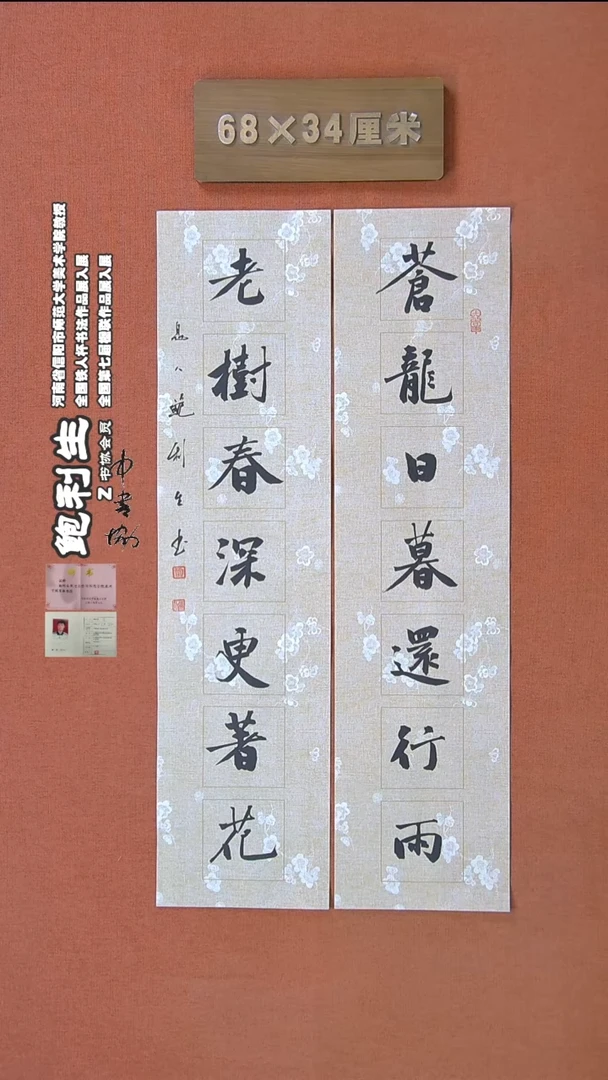 68×34厘米
蒼龍日暮還行雨
老樹春深更著花
鮑利生书
鲍利生
Z书协会员
中书协
河南省信阳市师范大学美术学院教授
全国铁人杯书法作品展入展
全国第七届楹联作品展入展